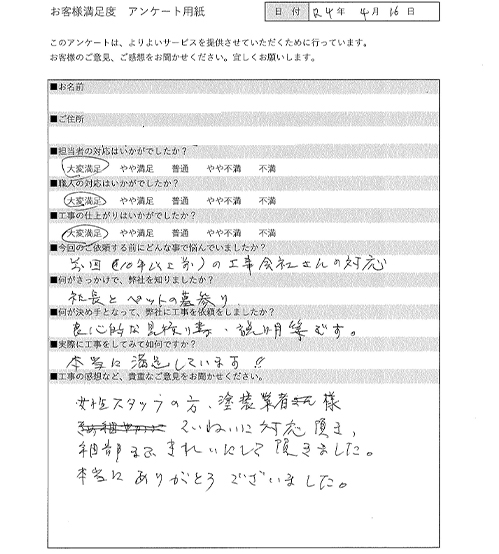 お客様満足度 アンケート用紙
日 付 R4年 4月 16日
このアンケートは、よりよいサービスを提供させていただくために行っています。
お客様のご意見、ご感想をお聞かせください。宜しくお願いします。
■お名前
■ご住所
■担当者の対応はいかがでしたか?
大変満足 やや満足 普通 やや不満 不満
■職人の対応はいかがでしたか?
大変満足 やや満足 普通 やや不満 不満
■工事の仕上がりはいかがでしたか?
大変満足 やや満足 普通 やや不満 不満
■今回のご依頼する前にどんな事で悩んでいましたか?
前回(10年以上前)の工事会社さんの対応
■何がきっかけで、弊社を知りましたか?
社長とペットの墓参り、
■何が決め手となって、弊社に工事を依頼をしましたか?
良心的な見積り書、説明等です。
■実際に工事をしてみて如何ですか?
本当に満足しています!!
■工事の感想など、貴重なご意見をお聞かせください。
女性スタッフの方、塗装業者様
ていねいに対応頂き、
細部まできれいにして頂きました。
本当にありがとうございました。